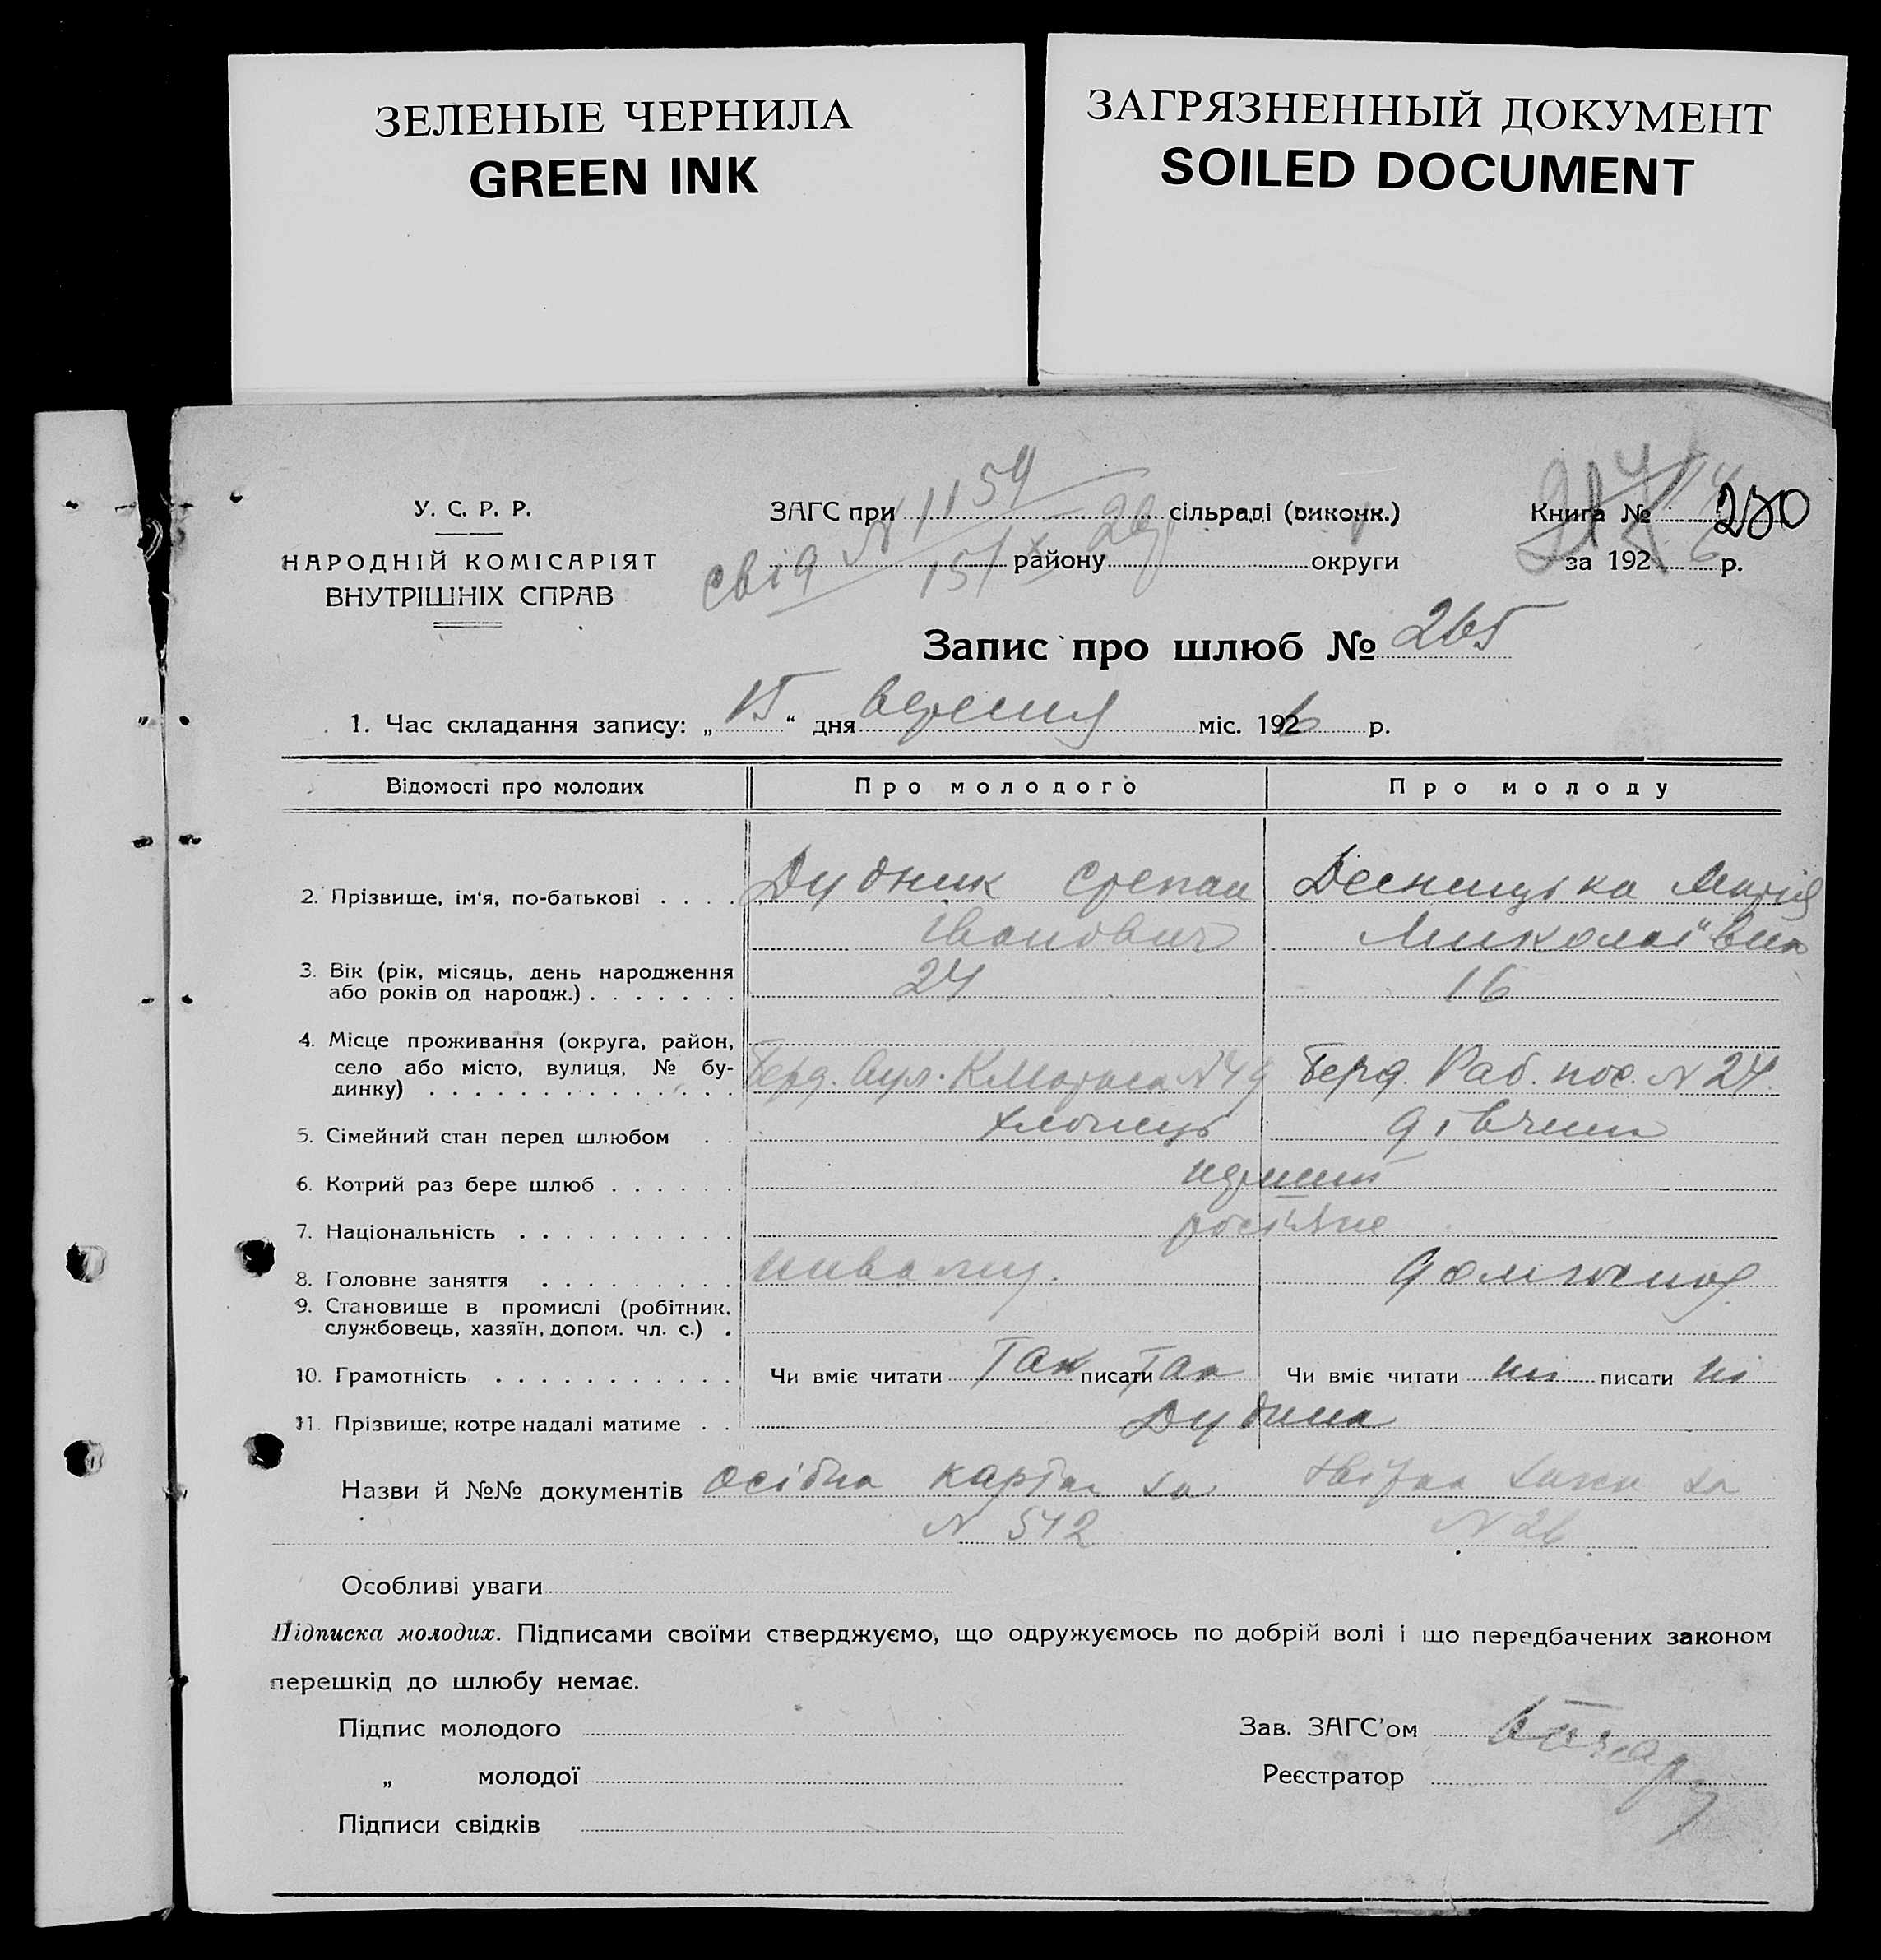 ЗЕЛЕНЫЕ ЧЕРНИЛА
GREEN INK
ЗАГРЯЗНЕННЫЙ ДОКУМЕНТ
SOILED DOCUMENT
У. С. Р. Р.
НАРОДНІЙ КОМІСАРІЯТ
ВНУТРІШНІХ СПРАВ
ЗАГС при сільраді (виконк.)
району округи
свід N 1159
15/X 26 р
Книга № 250
за 1926 р.
Запис про шлюб № 265
1. Час складання запису: „15“ дня вересня міс. 1926 р.
Відомості про молодих Про молодого Про молоду
2. Прізвище, ім‘я, по-батькові . . . . Дудник Степан Десницька Марія
Іванович Миколаївна
3. Вік (рік, місяць, день народження
або років од народж.) . . . . . . . 24 16
4. Місце проживання (округа, район,
село або місто, вулиця, № бу-
динку) . . . . . . . . . . . . . . Берд. вул. К Маркса N 49 Берд. Раб. пос. N 24
5. Сімейний стан перед шлюбом . . хлопець дівчина
6. Котрий раз бере шлюб . . . . . . перший
7. Національність . . . . . . . . . . росіяне
8. Головне заняття . . . . . . . . . інвалід. домгоспод.
9. Становище в промислі (робітник,
службовець, хазяїн, допом. чл. с.) .
10. Грамотність . . . . . . . . . . . Чи вміє читати Так писати Так Чи вміє читати ні писати ні
11. Прізвище, котре надалі матиме . .
Назви й №№ документів Осібна картка за
N 542 N 26
Особливі уваги
Підписка молодих. Підписами своїми стверджуємо, що одружуємось по добрій волі і що передбачених законом
перешкід до шлюбу немає.
Підпис молодого Зав. ЗАГС’ом
„ молодої Реєстратор
Підписи свідків